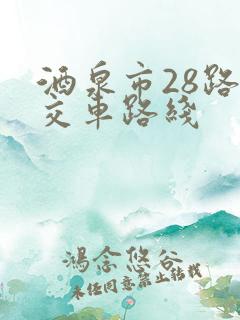 酒泉市28路
交车路线
鸿念悠谷
未经同意禁止转载